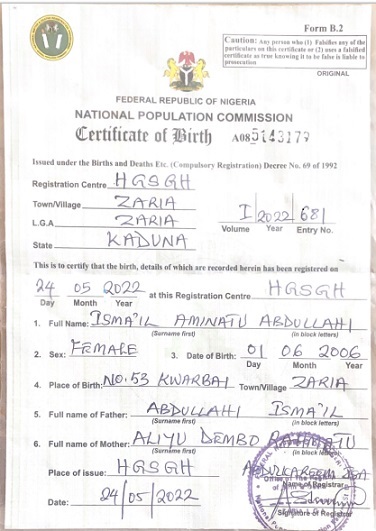 Form B.2
Caution: Any person who (1) Falsifies any of the
particulars on this certificate or (2) uses a falsified
certificate as true knowing it to be false is liable to
prosecution
ORIGINAL
FEDERAL REPUBLIC OF NIGERIA
NATIONAL POPULATION COMMISSION
Certificate of Birth A085143177
Issued under the Births and Deaths Etc. (Compulsory Registration) Decree No. 69 of 1992
Registration Centre HGSGH
Town/Village ZARIA
L.G.A ZARIA
State KADUNA
I 2022 681
Volume Year Entry No.
This is to certify that the birth, details of which are recorded herein has been registered on
24 05 2022 at this Registration Centre HGSGH
Day Month Year
1. Full Name: ISMA'IL AMINATU ABDULLAHI
(Surname first) (in block letters)
2. Sex: FEMALE 3. Date of Birth: 01 06 2006
Day Month Year
4. Place of Birth: NO. 53 KWARBAI Town/Village ZARIA
5. Full name of Father: ABDULLAHI ISMA'IL
(Surname first) (in block letters)
6. Full name of Mother: ALIYU DEMBO RAHMATU
(Surname first) (in block letters)
Place of issue: HGSGH ABDULKAREEM ISA
Name of Registrar
Date: 24/05/2022
Signature of Registrar